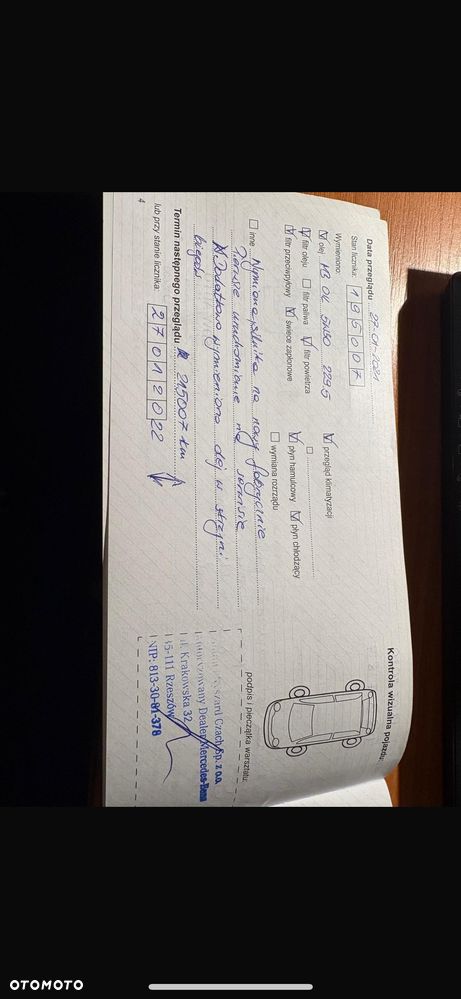 Data przeglądu 27-01-2021
Stan licznika: 195007
Wymieniono:
olej MB Oil 5W30 229.5
filtr oleju filtr paliwa filtr powietrza
filtr przeciwpyłowy świece zapłonowe
przegląd klimatyzacji
płyn hamulcowy płyn chłodzący
wymiana rozrządu
inne Wymiana silnika na nowy fabrycznie
Pierwsze uruchomienie na serwisie
Dodatkowo wymieniono olej w skrzyni
biegów
Termin następnego przeglądu 215007 km
lub przy stanie licznika: 27012022
4
Kontrola wizualna pojazdu:
podpis i pieczątka warsztatu:
Czach Sp. z o.o.
Dealer Mercedes-Benz
ul. Krakowska 32
35-111 Rzeszów
NIP: 813-30-81-378
OTOMOTO